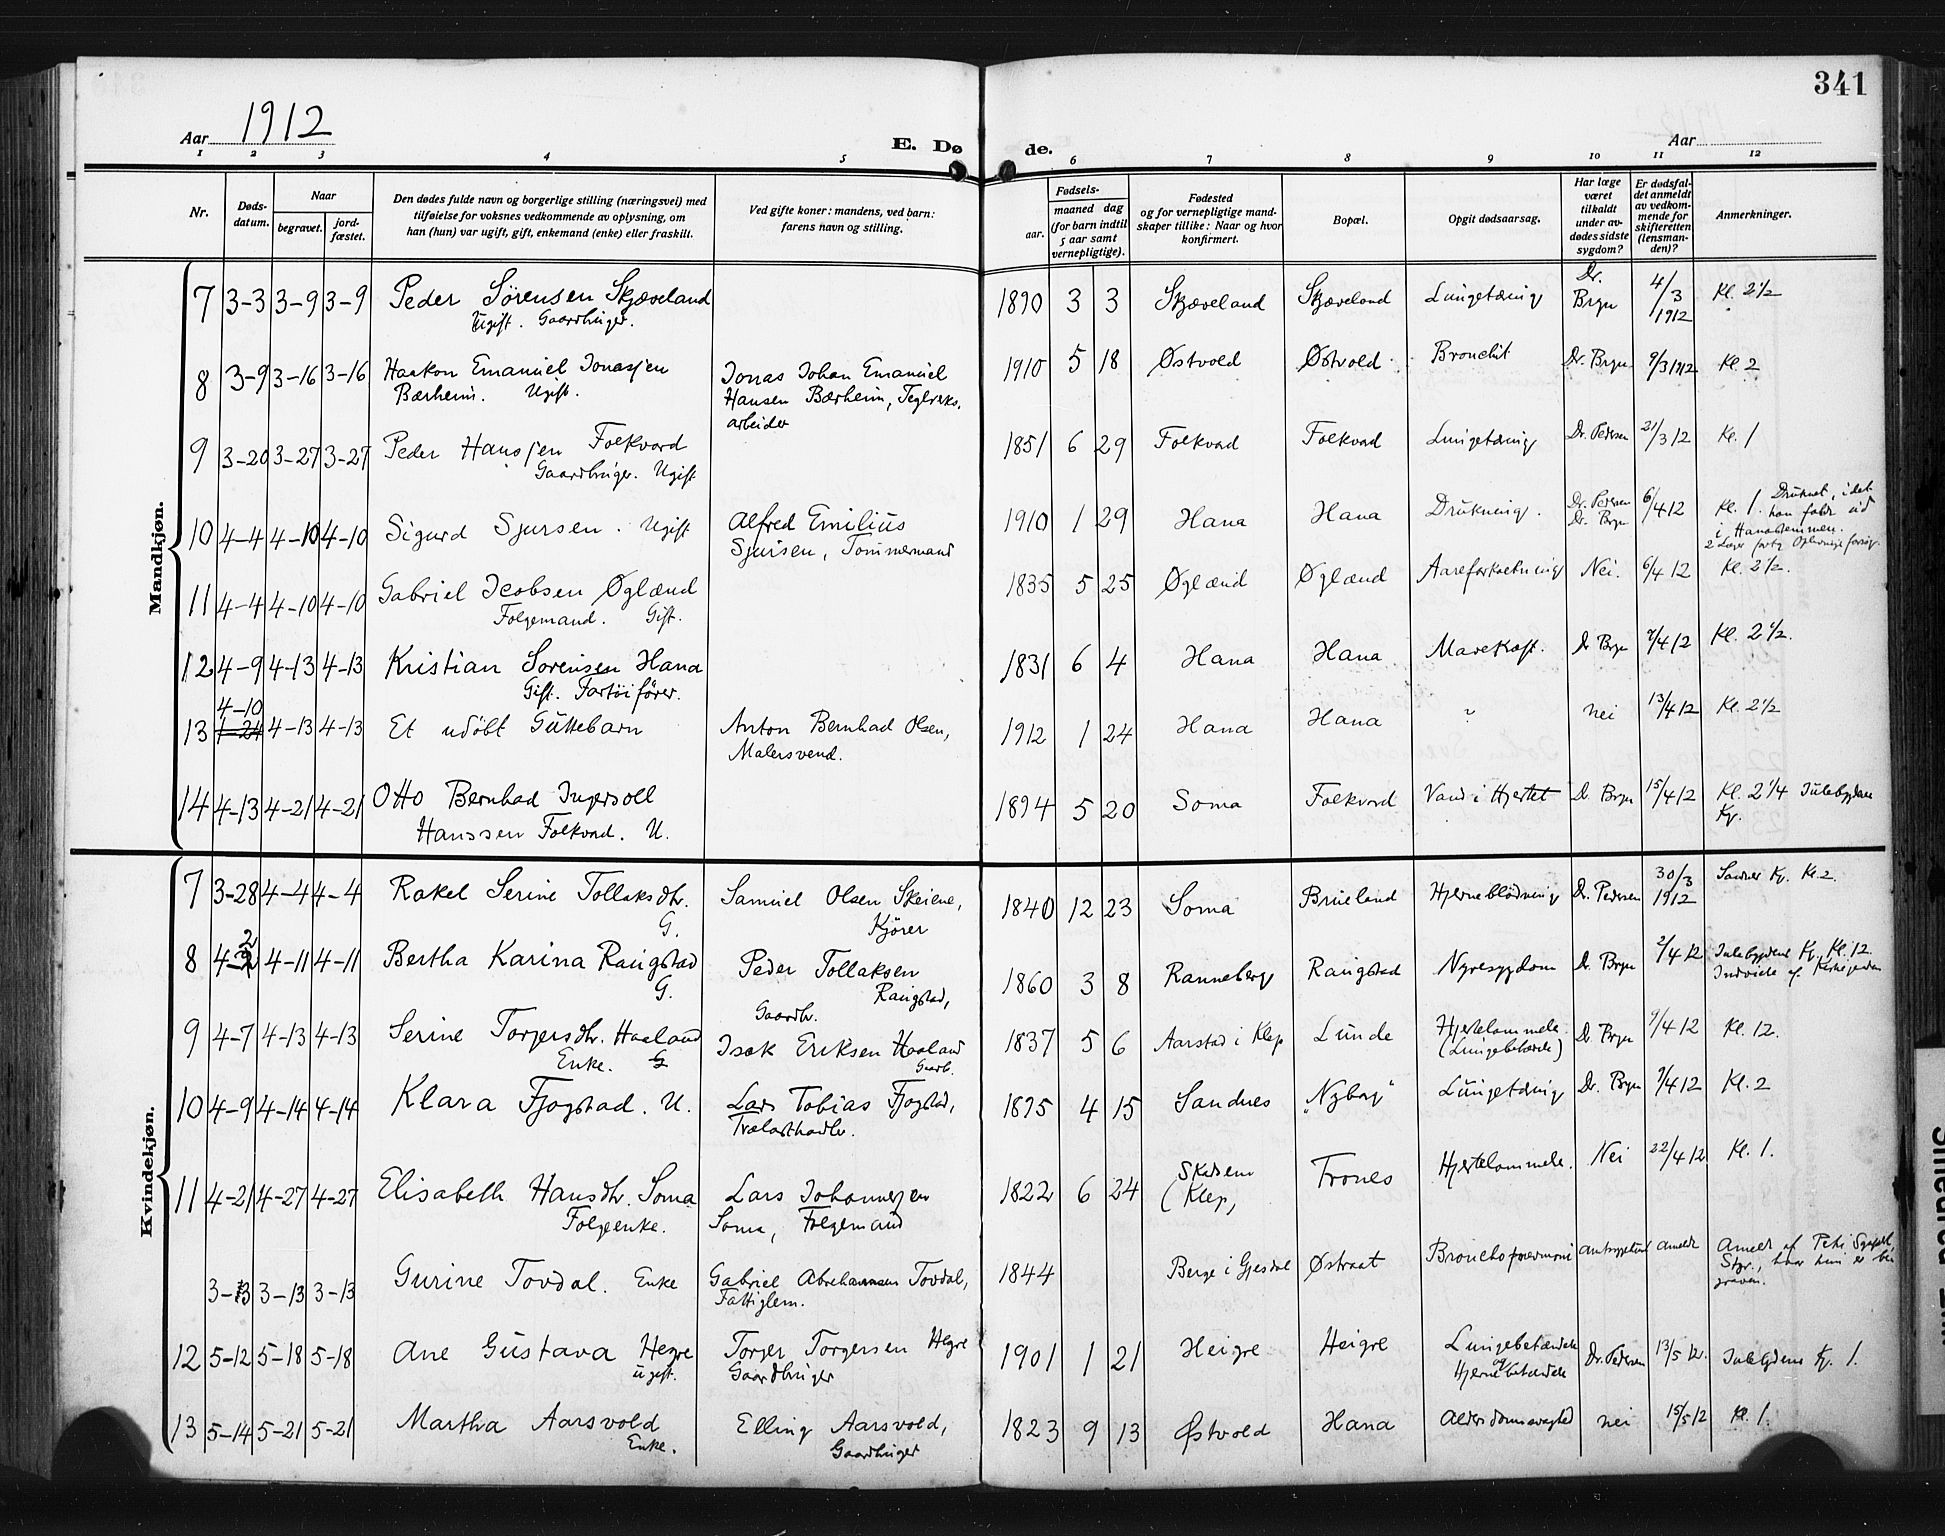 341
Aar 1912
E. Døde.
Aar
1 2 3 4 5 6 7 8 9 10 11 12
Nr.
Døds-
datum.
Naar
begravet.
jord-
fæstet.
Den dødes fulde navn og borgerlige stilling (næringsvei) med
tilføielse for voksnes vedkommende av oplysning, om
han (hun) var ugift, gift, enkemand (enke) eller fraskilt.
Ved gifte koner: mandens, ved barn:
farens navn og stilling.
Fødsels-
aar.
maaned dag
(for barn indtil
5 aar samt
vernepligtige).
Fødested
og for vernepligtige mand-
skaper tillike: Naar og hvor
konfirmert.
Bopæl.
Opgit dødsaarsag.
Har læge
været
tilkaldt
under av-
dødes sidste
sygdom?
Er dødsfal-
det anmeldt
av vedkom-
mende for
skifteretten
(lensman-
den)?
Anmerkninger.
Mandkjøn.
7 3-3 3-9 3-9 Peder Sørensen Skjæveland 1890 3 3 Skjæveland Skjæveland Lungetæring Dr. Bryn 4/3 1912 Kl. 2 1/2
Ugift. Gaardbruger.
8 3-9 3-16 3-16 Haakon Emanuel Jonassen Jonas Johan Emanuel 1910 5 18 Østvold Østvold Bronchit Dr. Bryn 9/3 1912 Kl 2
Bærheim. Ugift. Hansen Bærheim, Teglverks.
arbeider
9 3-20 3-27 3-27 Peder Hanssen Folkvord 1851 6 29 Folkvod Folkvod Lungetæring Dr. Pedersen 21/3 12 Kl. 1
Gaardbruger. Ugift
10 4-4 4-10 4-10 Sigurd Sjursen. Ugift Alfred Emilius 1910 1 29 Hana Hana Drukning. Dr. Pedersen Dr. Bryn 6/4 12 Kl. 1. Druknet, idet
Sjursen, Tømmermand han faldt ud
i Hanadammen.
11 4-4 4-10 4-10 Gabriel Jcobsen Øglænd 1835 5 25 Øglænd Øglænd Aareforkalkning Nei. 6/4 12 Kl. 2 1/2.
Folgemand. Gift.
12 4-9 4-13 4-13 Kristian Sørensen Hana 1831 6 4 Hana Hana Mavekræft. Dr Bryn 9/4 12 Kl. 2 1/2.
Gift. Fartøifører.
4-10
13 1-24 4-13 4-13 Et udøbt Guttebarn Anton Bernhad Olsen, 1912 1 24 Hana Hana ? nei 13/4 12 Kl. 2 1/2
Malersvend.
14 4-13 4-21 4-21 Otto Bernhad Ingersoll 1894 5 20 Soma Folkvord Vand i Hjertet D. Bryn 15/4 12 Kl. 2 1/4 Julebygdens
Hanssen Folkvod. U. Kg.
Kvindekjøn.
7 3-28 4-4 4-4 Rakel Serine Tollaksdtr. Samuel Olsen Skeiene, 1840 12 23 Soma Brueland Hjerneblødning Dr. Pedersen 30/3 1912 Sandnes Kg. Kl. 2.
G. Kjører
8 4-2 4-11 4-11 Bertha Karina Raugstad Peder Tollaksen 1860 3 8 Ranneberg Raugstad Nyresygdom Dr. Bryn 2/4 12 Julebygdens Kg. Kl. 12.
G. Raugstad, Indviede af Kirkegaarden
Gaardbr.
9 4-7 4-13 4-13 Serine Torgersdtr. Haaland Isak Eriksen Haaland 1837 5 6 Aarstad i Klep Lunde Hjertelammelse. Dr. Bryn 9/4 12 Kl. 12.
Enke. G Gaardb. (Lungebetænd.)
10 4-9 4-14 4-14 Klara Fjogstad. U. Lars Tobias Fjogstad, 1895 4 15 Sandnes "Nyborg" Lungetæring Dr. Bryn 9/4 12 Kl. 2
Trælasthandler.
11 4-21 4-27 4-27 Elisabeth Hansdtr. Soma Lars Johannesen 1822 6 24 (Klep, Trones Hjertelammelse. Nei 22/4 12 Kl. 1.
Folgeenke. Soma, Folgemand
3-13 3-13 3-13 Gurine Tovdal. Enke Gabriel Abrahamsen Tovdal, 1844 Berge i Gjesdal Østraat Bronchopneumoni anmeldt Anmeldt af
Fattiglem. hvor hun er be-
graven.
12 5-12 5-18 5-18 Ane Gustava Hegre Torger Torgersen Hegre 1901 1 21 Heigre Heigre Lungebetændelse Dr. Pedersen 13/5 12. Julebygdens Kg. 1.
ugift. Gaardbruger og Hjernebetændelse
13 5-14 5-21 5-21 Martha Aarsvold Elling Aarsvold, 1823 9 13 Østvold Hana Alderdomssvaghed nei 15/5 12 Kl. 1.
Enke. Gaardbruger